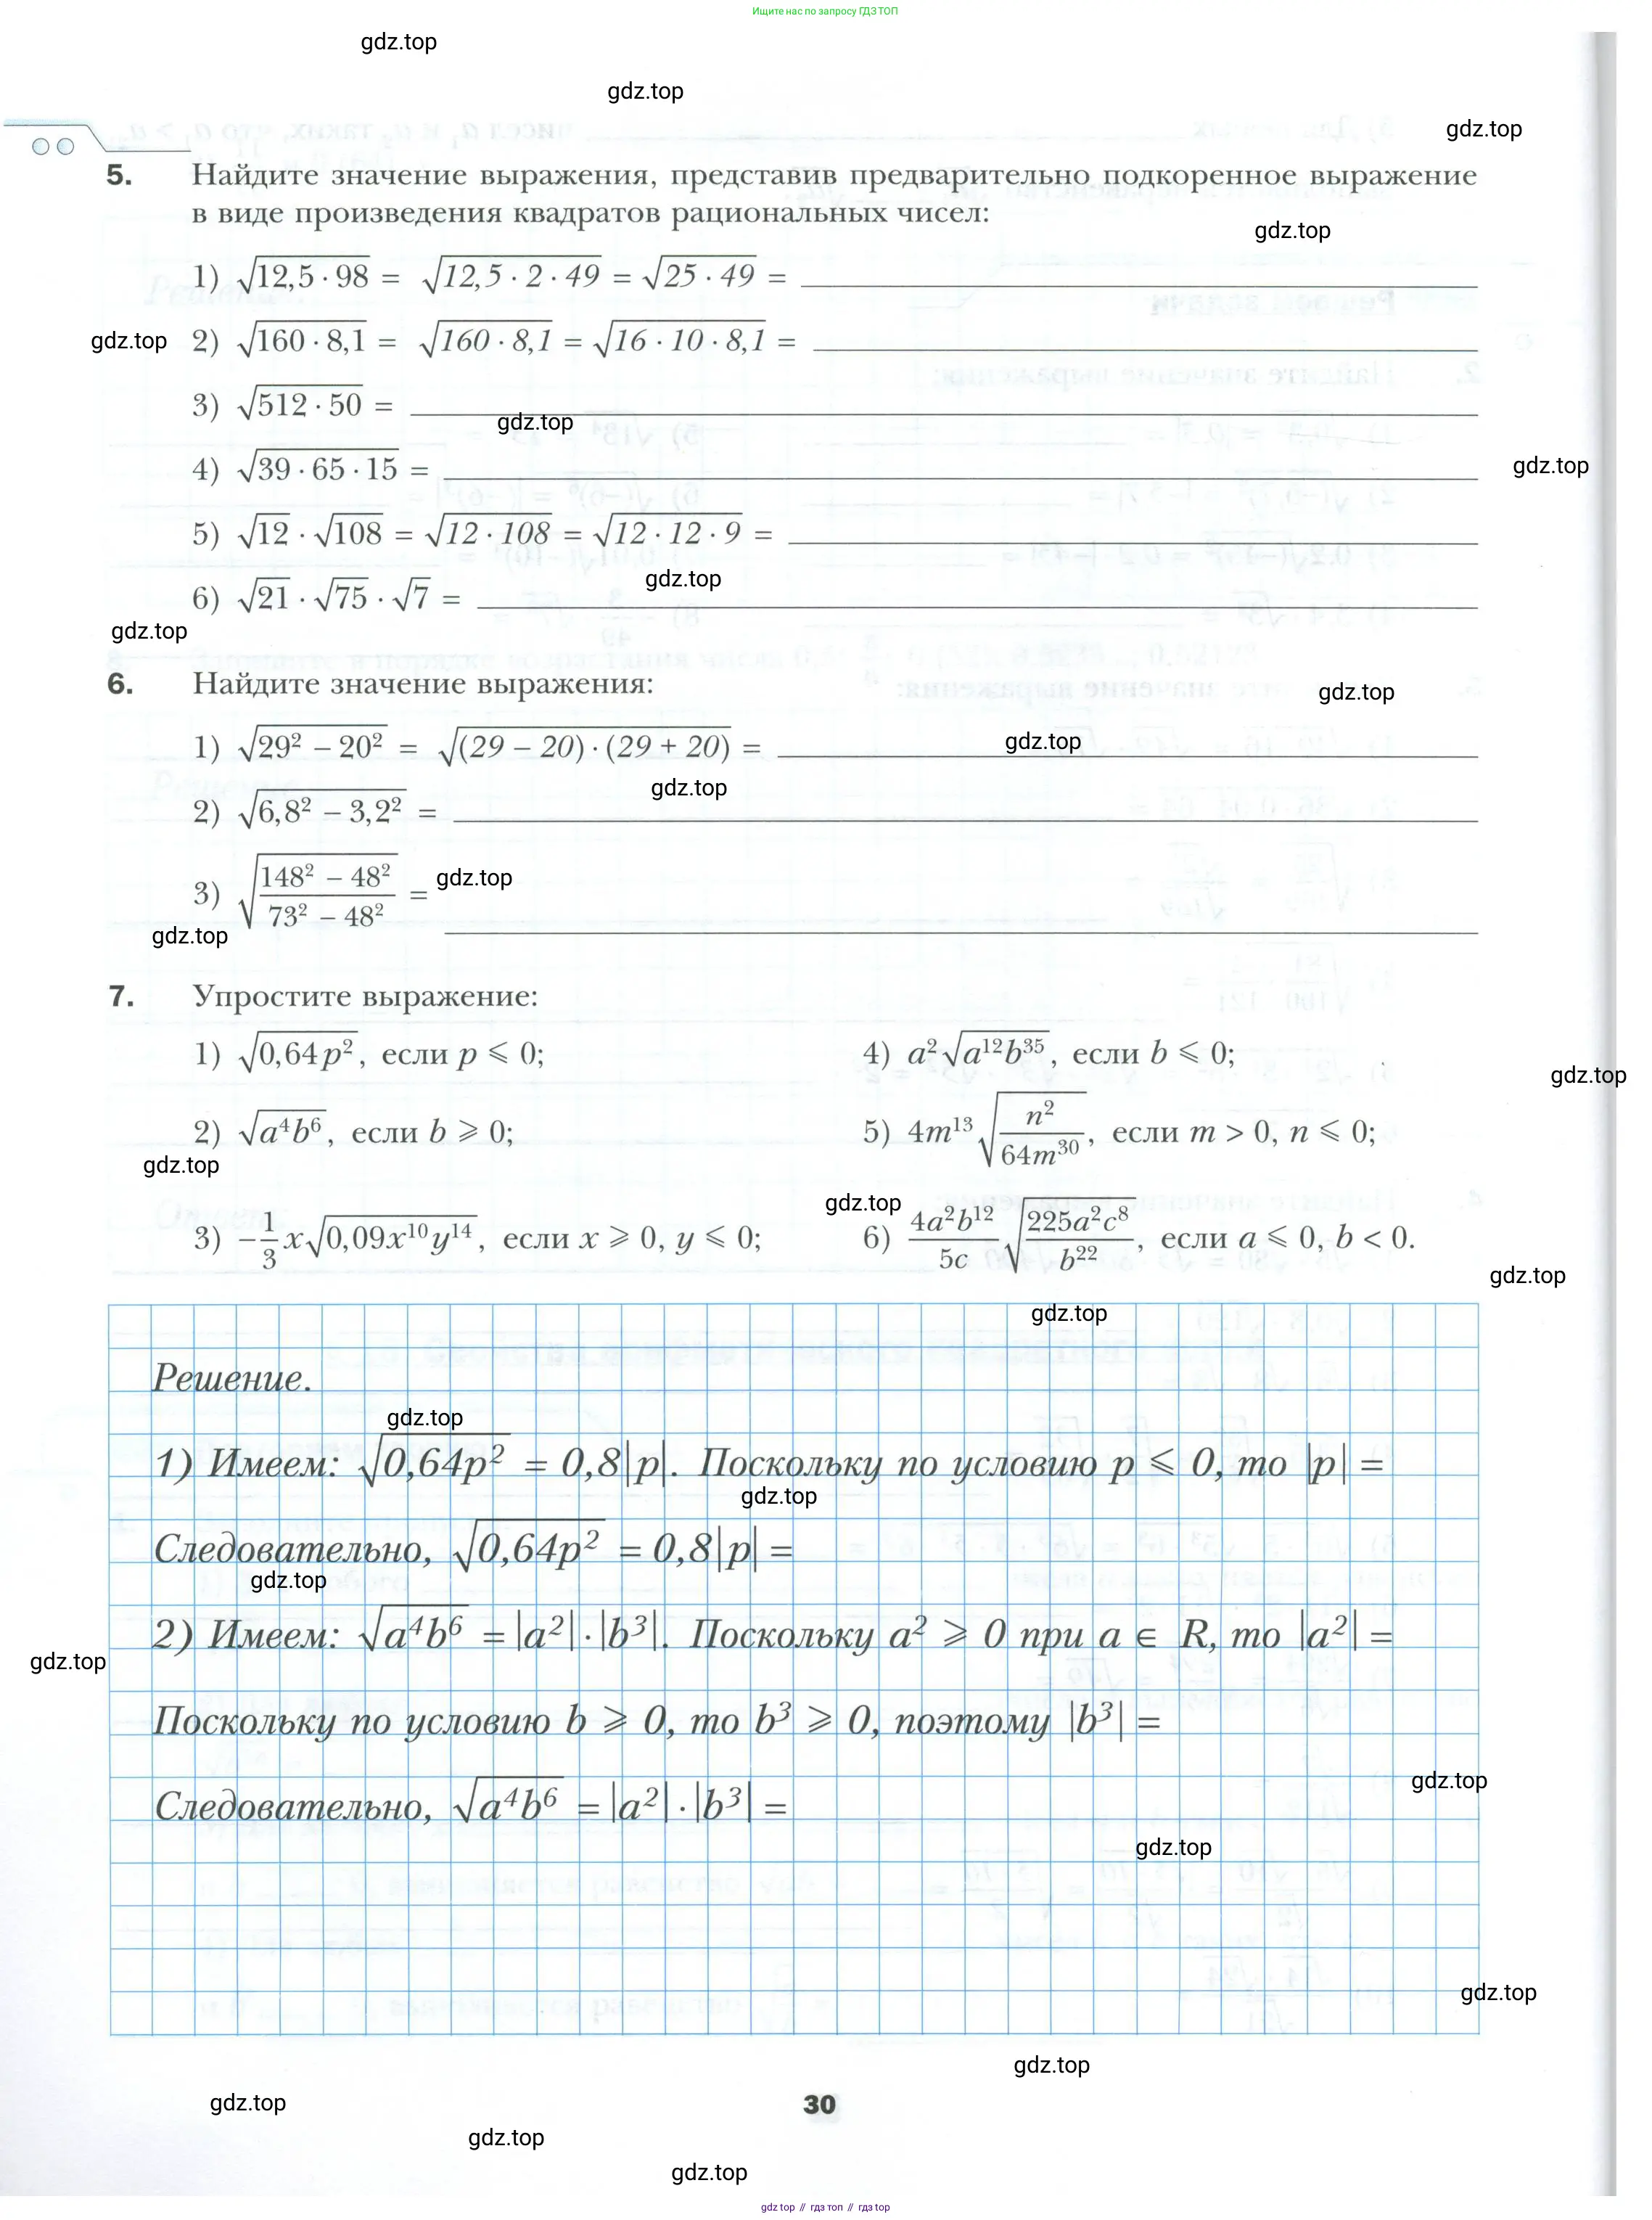 Ищите нас по запросу ГДЗ ТОП
gdz.top
gdz.top
gdz.top
5. Найдите значение выражения, представив предварительно подкоренное выражение
в виде произведения квадратов рациональных чисел:
gdz.top
1) √(12,5 · 98) = √(12,5 · 2 · 49) = √(25 · 49) =
gdz.top 2) √(160 · 8,1) = √(160 · 8,1) = √(16 · 10 · 8,1) =
3) √(512 · 50) =
gdz.top
4) √(39 · 65 · 15) =
gdz.top
5) √12 · √108 = √(12 · 108) = √(12 · 12 · 9) =
gdz.top
6) √21 · √75 · √7 =
gdz.top
6. Найдите значение выражения:
gdz.top
1) √(29² – 20²) = √((29 – 20) · (29 + 20)) =
gdz.top
gdz.top
2) √(6,8² – 3,2²) =
3) √((148² – 48²)/(73² – 48²)) =
gdz.top
gdz.top
7. Упростите выражение:
1) √(0,64p²), если p ⩽ 0;
4) a²√(a¹²b³⁵), если b ⩽ 0;
gdz.top
2) √(a⁴b⁶), если b ⩾ 0;
5) 4m¹³√(n²/(64m³⁰)), если m > 0, n ⩽ 0;
gdz.top
gdz.top
3) –1/3 x√(0,09x¹⁰y¹⁴), если x ⩾ 0, y ⩽ 0;
6) (4a²b¹²)/(5c) √((225a²c⁸)/b²²), если a ⩽ 0, b < 0.
gdz.top
gdz.top
Решение.
gdz.top
1) Имеем: √(0,64p²) = 0,8|p|. Поскольку по условию p ⩽ 0, то |p| =
gdz.top
Следовательно, √(0,64p²) = 0,8|p| =
gdz.top
2) Имеем: √(a⁴b⁶) = |a²| · |b³|. Поскольку a² ⩾ 0 при a ∈ R, то |a²| =
gdz.top
Поскольку по условию b ⩾ 0, то b³ ⩾ 0, поэтому |b³| =
gdz.top
Следовательно, √(a⁴b⁶) = |a²| · |b³| =
gdz.top
gdz.top
gdz.top
gdz.top
30
gdz.top
gdz.top
gdz top // гдз топ // гдз top